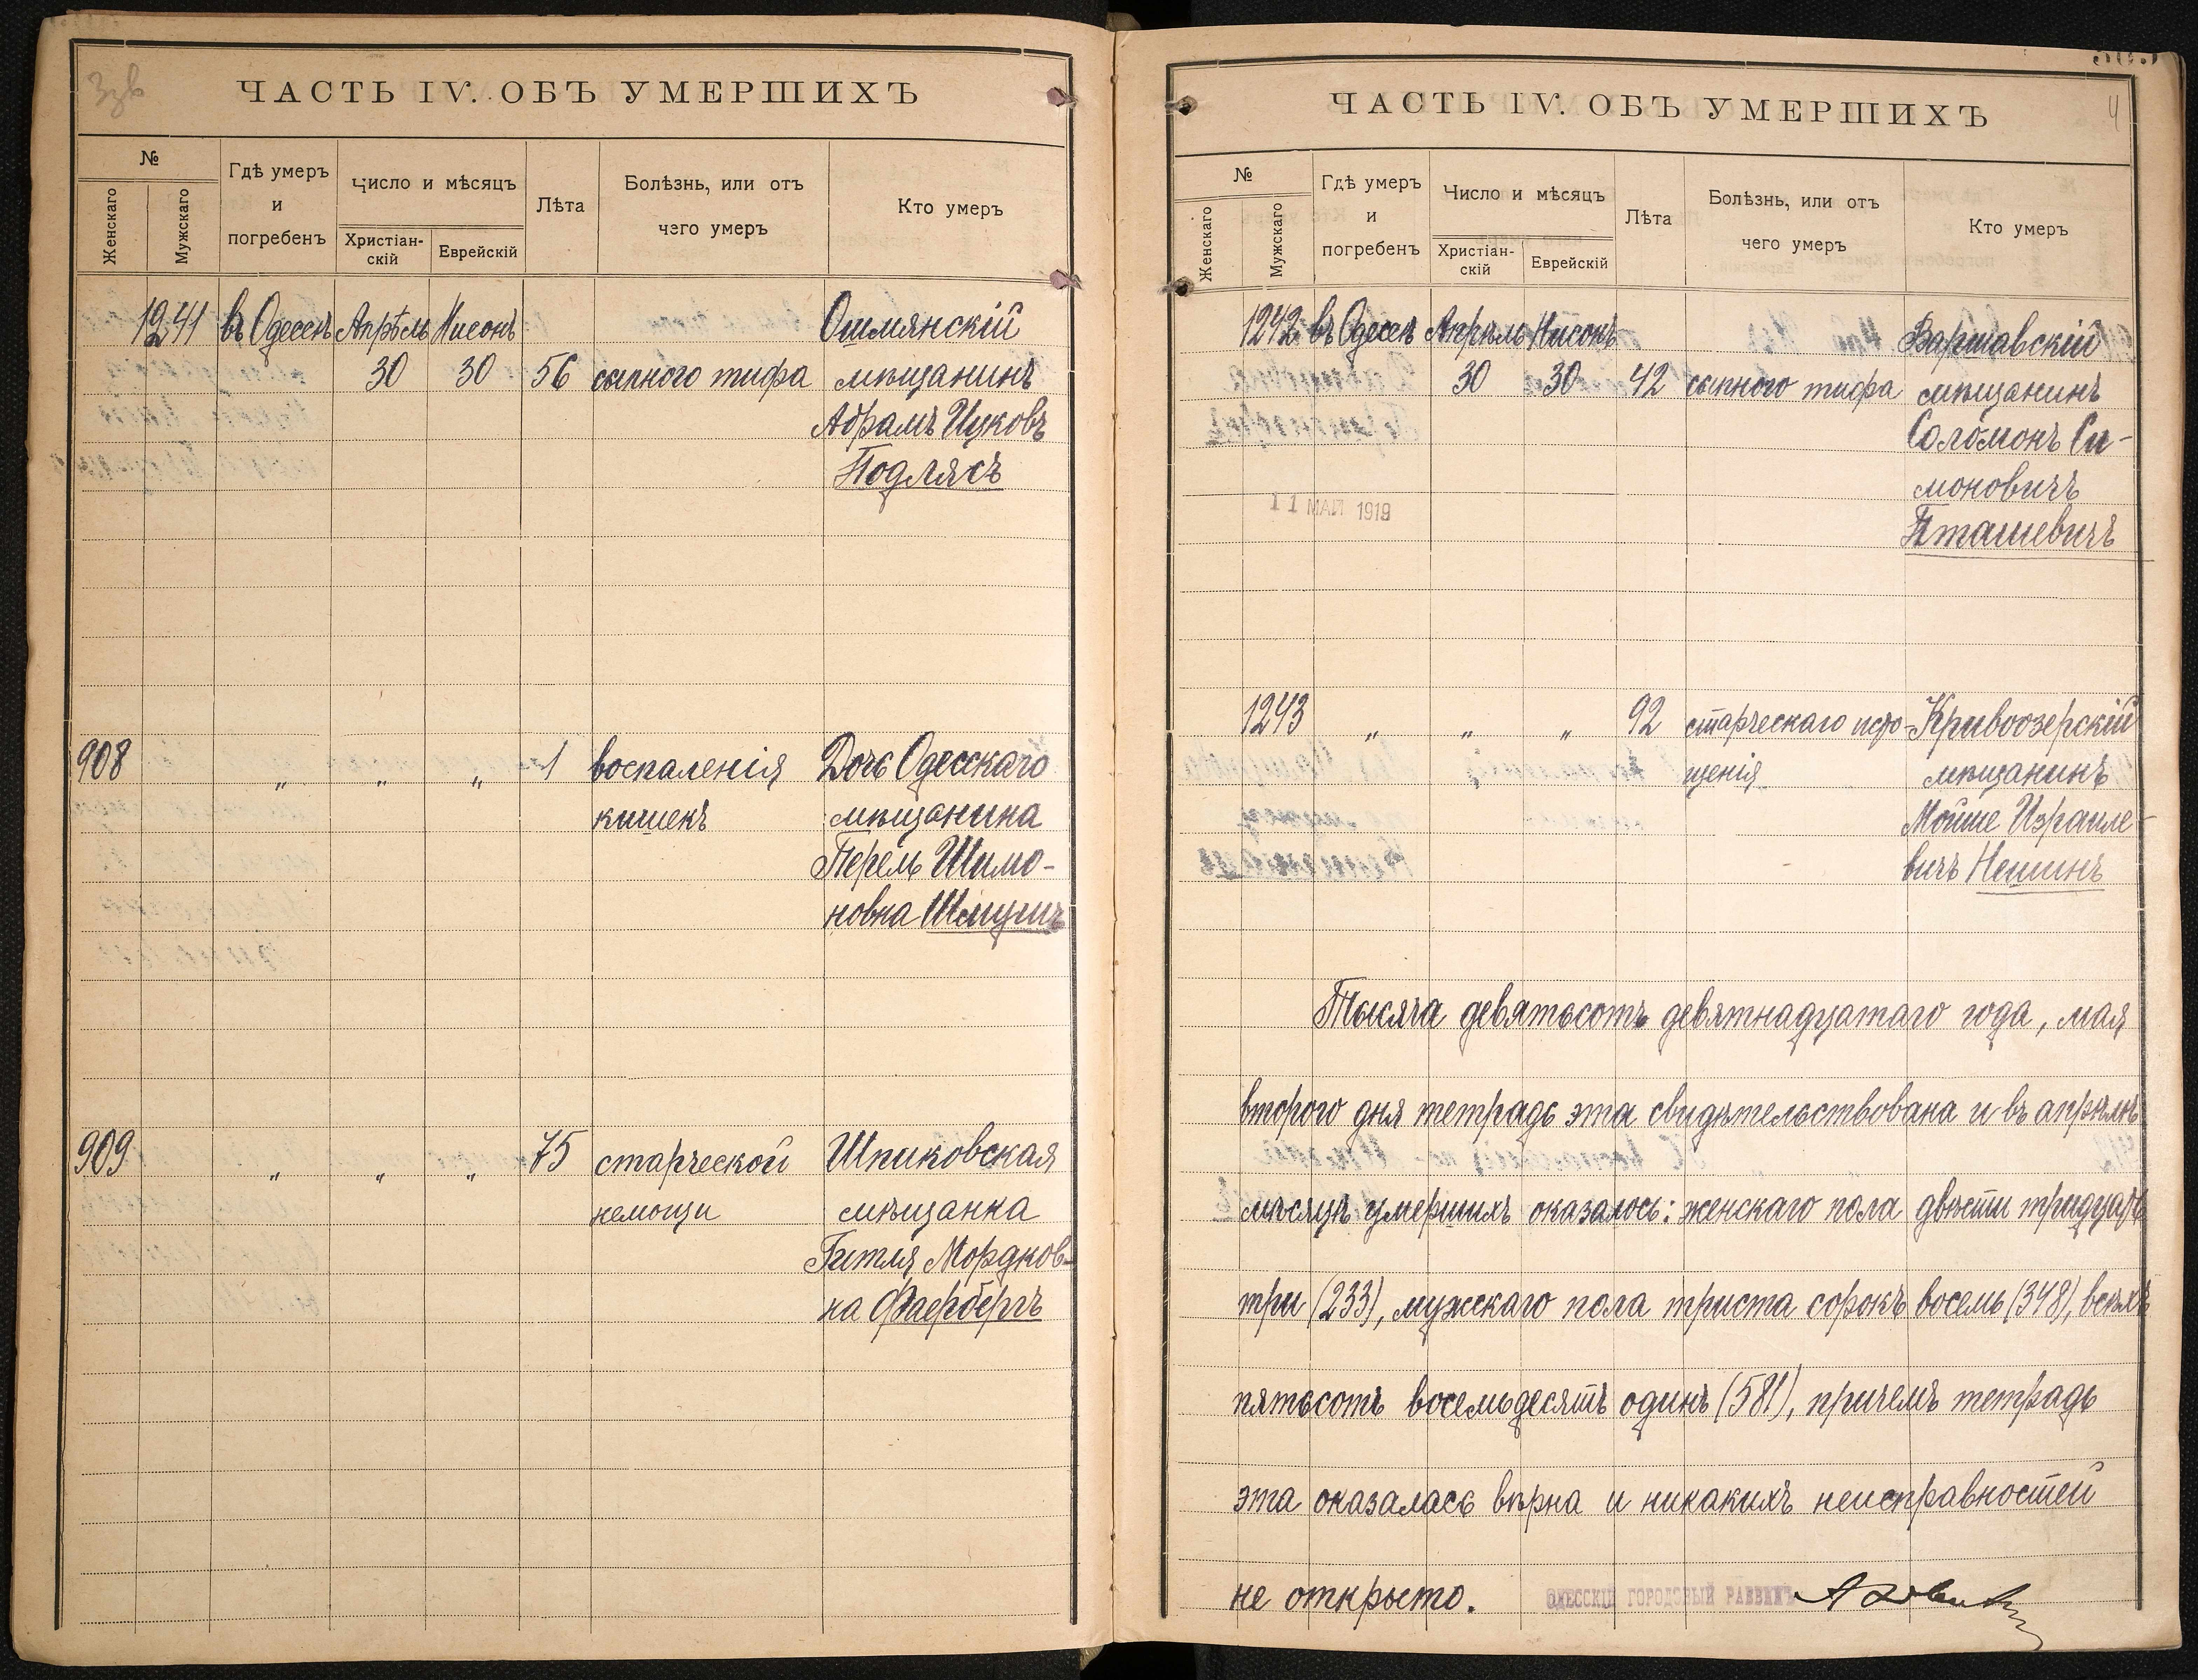 ЧАСТЬ IV. ОБЪ УМЕРШИХЪ
№
Женскаго
Мужскаго
Гдѣ умеръ
и
погребенъ
Число и мѣсяцъ
Христіан-
скій
Еврейскій
Лѣта
Болѣзнь, или отъ
чего умеръ
Кто умеръ
1241 въ Одессѣ Апрѣль Нисонъ Ошмянскій
30 30 56 сыпного тифа мѣщанинъ
Абрамъ Ицковъ
Подлясъ
908 „ „ „ 1 воспаленія Дочь Одесскаго
кишекъ мѣщанина
Перель Шимо-
новна
909 „ „ „ 75 старческой Шпиковская
немощи мѣщанка
Гитля Мордков-
на Фаербергъ
ЧАСТЬ IV. ОБЪ УМЕРШИХЪ
4
№
Женскаго
Мужскаго
Гдѣ умеръ
и
погребенъ
Число и мѣсяцъ
Христіан-
скій
Еврейскій
Лѣта
Болѣзнь, или отъ
чего умеръ
Кто умеръ
1242 въ Одессѣ Апрѣль Нисонъ Варшавскій
30 30 42 сыпного тифа мѣщанинъ
Соломонъ Си-
моновичъ
Пташевичъ
11 МАЙ 1919
1243 „ „ „ 92 старческаго исто- Кривоозерскій
щенія мѣщанинъ
Мойше Израиле-
вичъ Нешинъ
Тысяча девятьсотъ девятнадцатаго года, мая
второго дня тетрадь эта свидѣтельствована и въ апрѣлѣ
мѣсяцѣ умершихъ оказалось: женскаго пола двѣсти тридцать
три (233), мужскаго пола триста сорокъ восемь (348), всѣхъ
пятьсотъ восемьдесятъ одинъ (581), причемъ тетрадь
эта оказалась вѣрна и никакихъ неисправностей
не открыто. ОДЕССКІЙ ГОРОДСКОЙ РАВВИНЪ